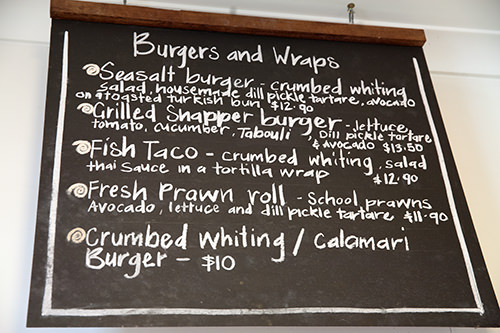 Burgers and Wraps
Seasalt burger - crumbed whiting
salad, housemade dill pickle tartare, avocado
on a toasted turkish bun $12.90
Grilled Snapper burger - lettuce,
tomato, cucumber, Tabouli Dill pickle tartare
& Avocado $13.50
Fish Taco - crumbed whiting, salad
thai sauce in a tortilla wrap
$12.90
Fresh Prawn roll - School prawns
Avocado, lettuce and dill pickle tartare $11.90
Crumbed Whiting / Calamari
Burger - $10